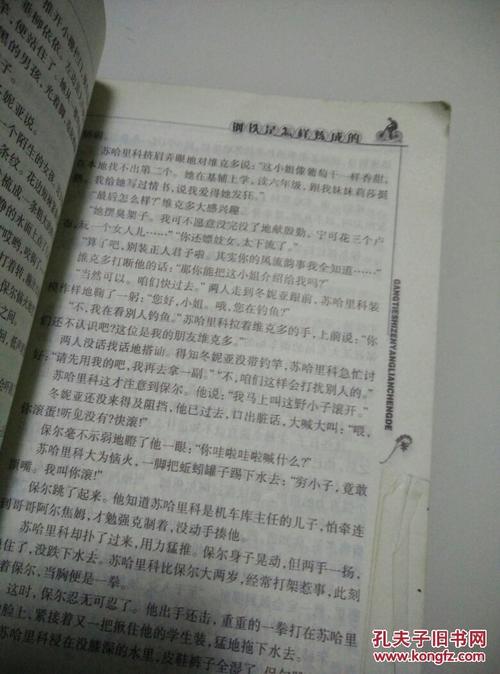 钢铁是怎样炼成的
苏哈里科挤眉弄眼地对维克多说：“这小姐像葡萄干一样香甜，
本地找不出第二个。她在基辅上学，读六年级，跟我妹妹莉莎挺
我给她写过情书，说我爱得她发狂。”
“最后怎么样？”维克多大感兴趣
“她摆臭架子。我可不愿意没完没了地献殷勤，宁可花三个卢
玩一个女人儿……”“你还嫖妓女，太下流了。”
“算了吧，别装正人君子啦。其实你的风流韵事我全知道……”
维克多打断他的话：“那你能把这小姐介绍给我吗？”
“当然可以。咱们快过去。”两人走到冬妮亚跟前，苏哈里科装
模作样地鞠了一躬：“您好，小姐。哦，您在钓鱼？”
“不，我在看别人钓鱼。”苏哈里科拉着维克多的手，上前说：“你
们还不认识吧？这位是我的朋友维克多。”
两人没话找话地搭讪。得知冬妮亚没带钓竿，苏哈里科急忙讨
好：“请先用我的吧，我再去拿一副。”“不，咱们这样会打扰别人的。”
苏哈里科这才注意到保尔。他说：“我马上叫这野小子滚开。”
冬妮亚还没来得及阻挡，他已过去，口出脏话，大喊大叫：“喂，
你滚蛋！听见没有？快滚！”
保尔毫不示弱地瞪了他一眼：“你哇啦哇啦喊什么？”
苏哈里科大为恼火，一脚把蚯蚓罐子踢下水去：“穷小子，竟敢
嘴。我叫你滚！”
保尔跳了起来。他知道苏哈里科是机车库主任的儿子，怕牵连
到哥哥阿尔焦姆，才勉强克制着，没动手揍他。
苏哈里科却扑了过来，用力猛推。保尔身子晃动，但两手一扬，
住了，没跌下水去。苏哈里科比保尔大两岁，经常打架惹事，此刻
着保尔，当胸便是一拳。
这时，保尔忍无可忍了。他出手还击，重重的一拳打在苏哈里
脸上，紧接着又一把揪住他的学生装，猛地拖下水去。
苏哈里科浸在没膝深的水里，皮鞋裤子全湿了
GANGTIESHIZENYANGLIANCHENGDE
推开小
垂柳依依
便站住了
的男孩，光着脚
妮亚说。
一个陌生的女孩
条纹。
孔夫子旧书网
www.kongfz.com